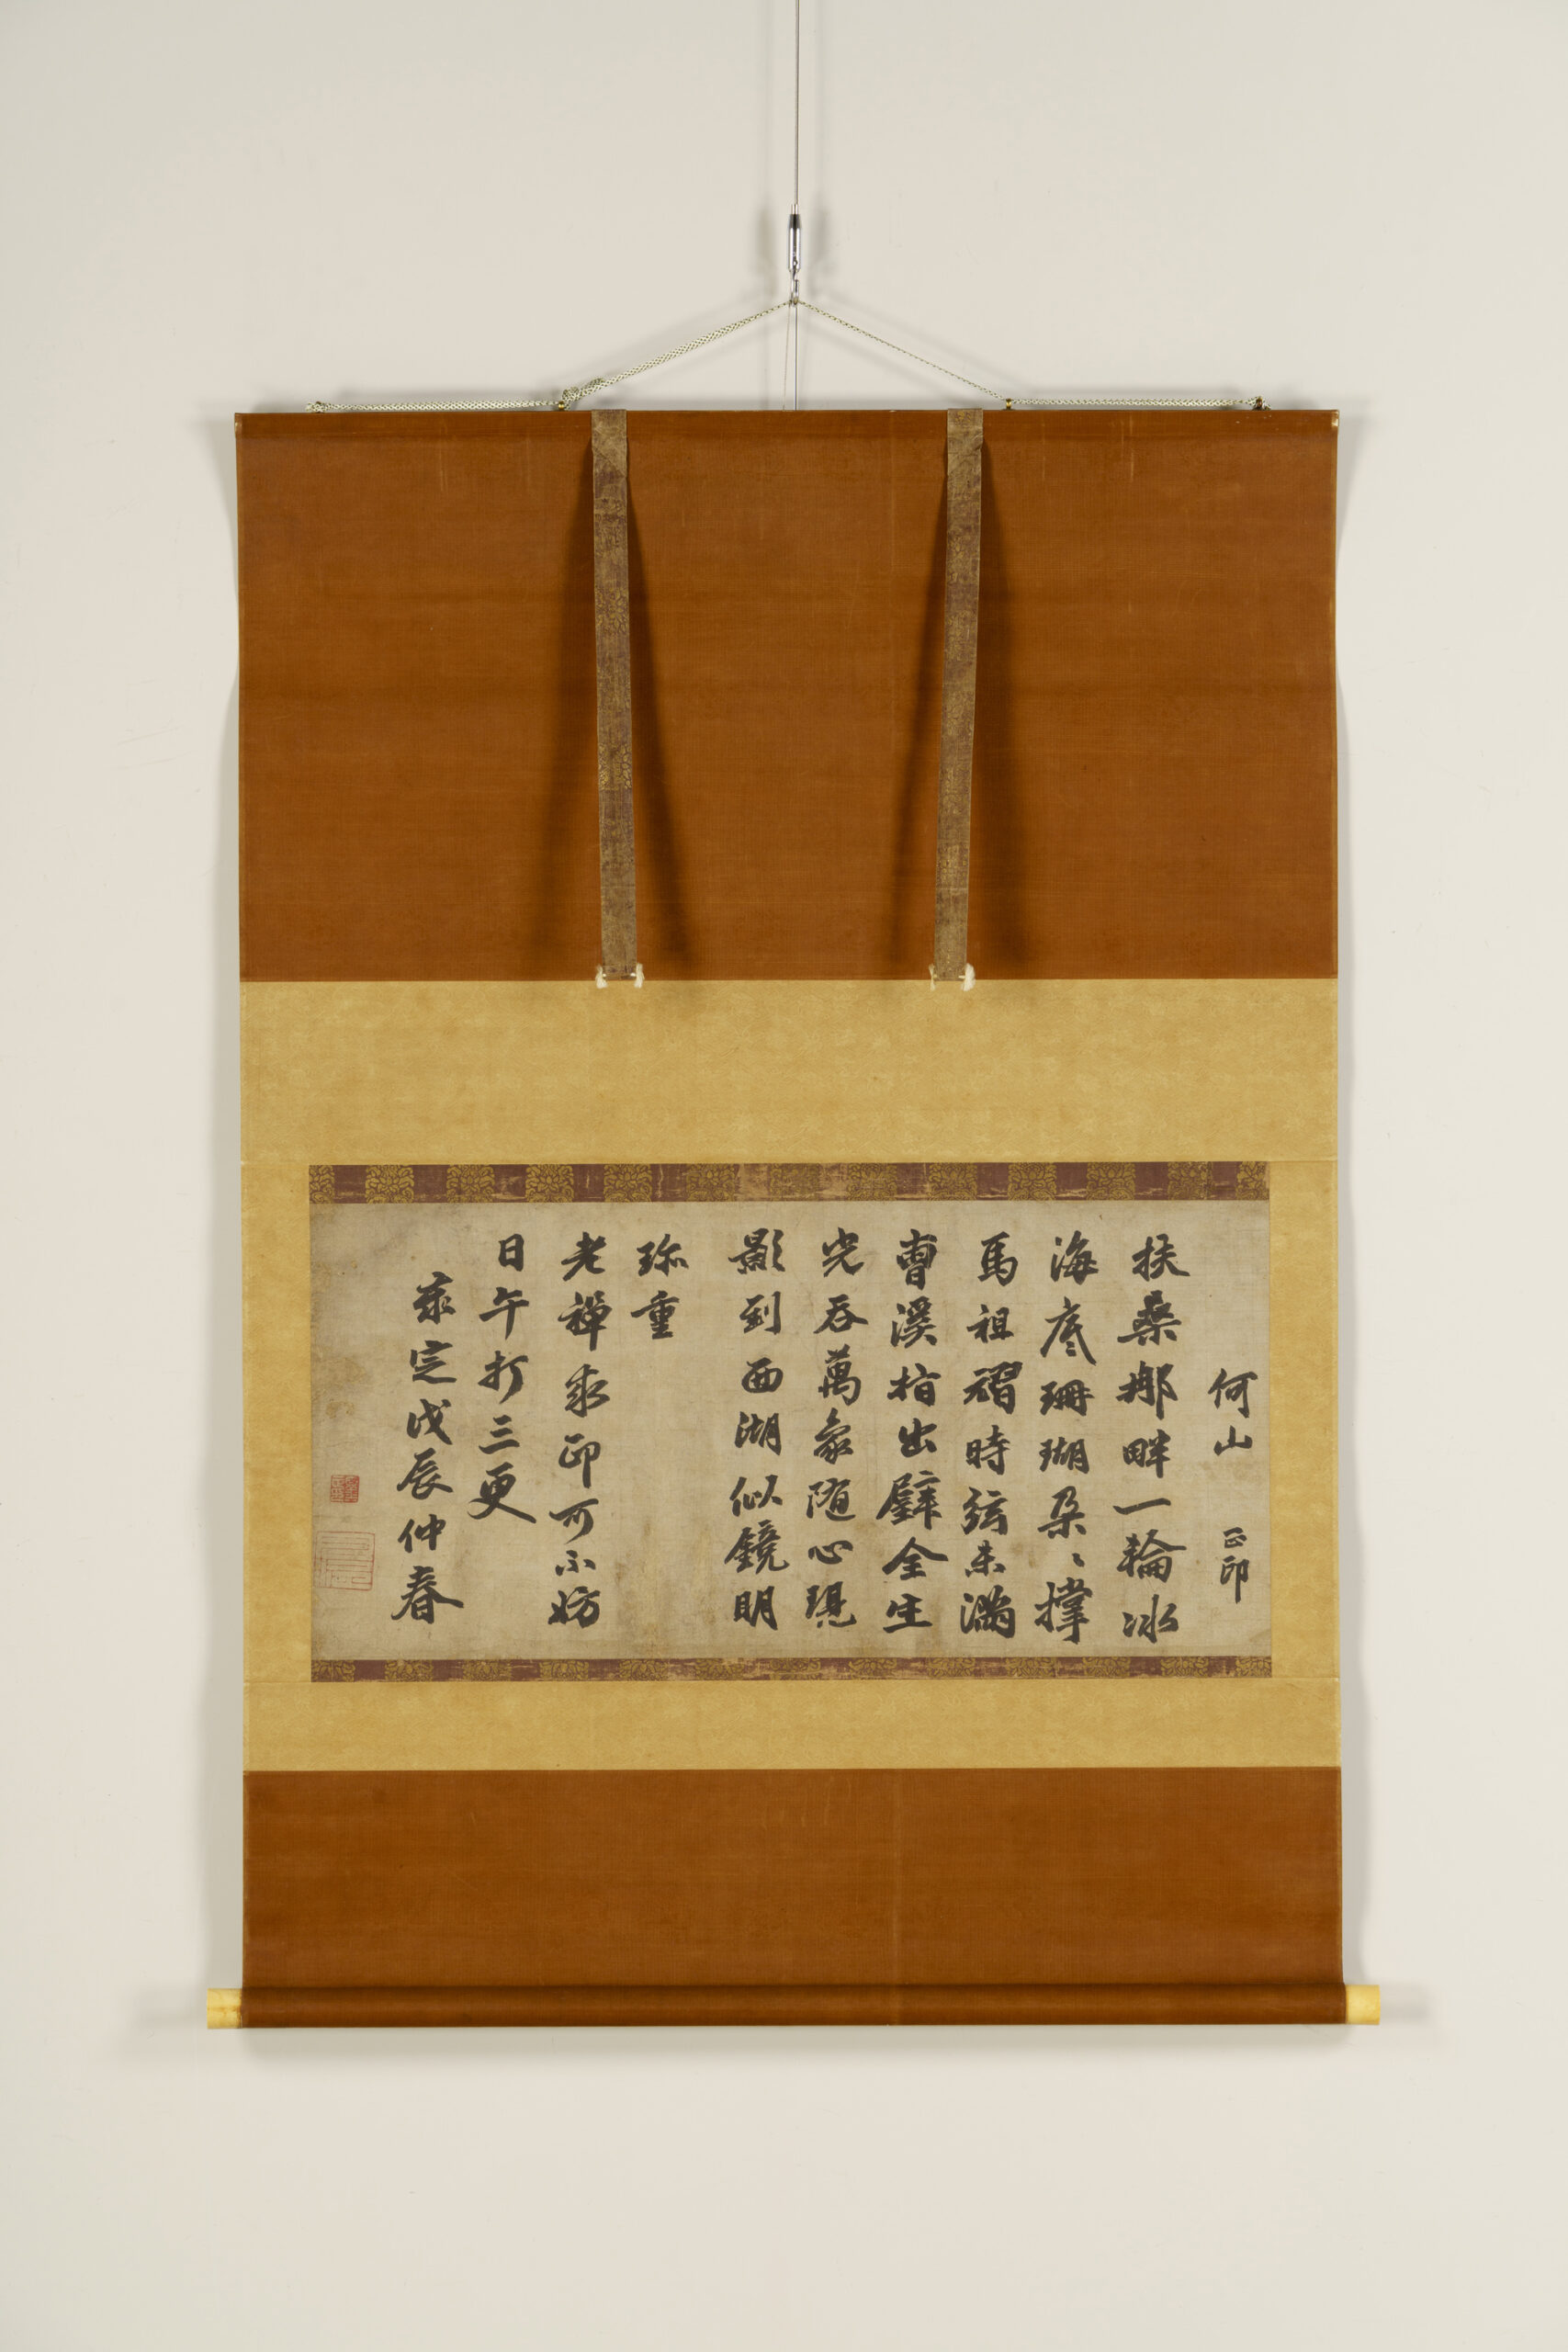 何山 正印
扶桑那畔一輪冰
海底珊瑚朶〻撑
馬祖翫時弦未満
曹溪指出璧全生
光吞萬象随心現
影到西湖似鏡明
珎重
老禪求印可不妨
日午打三更
泰定戊辰仲春